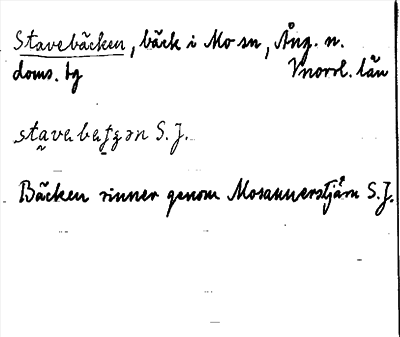 Stavebäcken, bäck i Mo sn, Ång. n.
doms. bg Vnorrl. län
stavabeʈʂən S.J.
Bäcken rinner genom Mosannerstjärn S.J.